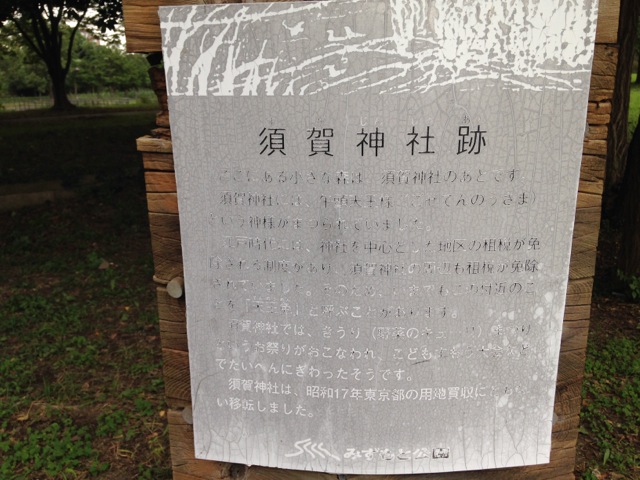 須賀神社跡
ここにある小さな森は、須賀神社のあとです。
須賀神社には、牛頭天王様（ごずてんのうさま）
という神様がまつられていました。
江戸時代には、神社を中心とした地区の租税が免
除される制度があり、須賀神社の周辺も租税が免除
されていました。そのため、いまでもこの付近のこ
とを「 」と呼ぶことがあります。
須賀神社では、きうり（ キュウリ）
というお祭りがおこなわれ、こども
でたいへんにぎわったそうです。
須賀神社は、昭和17年東京都の用地買収にともな
い移転しました。